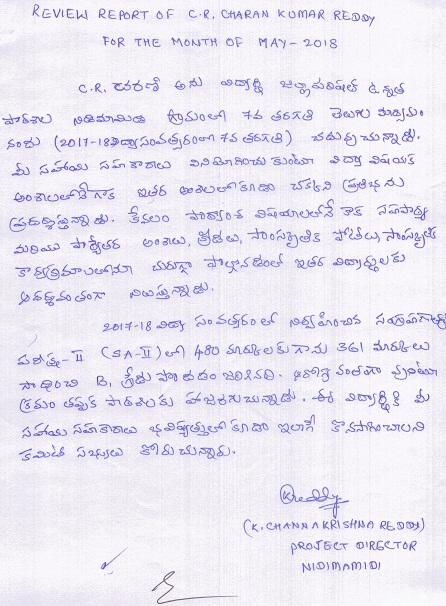 REVIEW REPORT OF C.R. CHARAN KUMAR REDDY
FOR THE MONTH OF MAY-2018
C.R. చరణ్ అను విద్యార్థి జిల్లాపరిషత్ ఉన్నత
పాఠశాల నిడిమామిడి గ్రామంలో 7వ తరగతి తెలుగు మాధ్యమం
నందు (2017-18 విద్యాసంవత్సరంలో 7వ తరగతి) చదువుచున్నాడు.
మీ సహాయ సహకారాలు వినియోగించుకుంటూ విద్యా విషయక
అంశాలలోనేగాక ఇతర అంశాలలోకూడా చక్కని ప్రతిభను
ప్రదర్శిస్తున్నాడు. కేవలం పాఠ్యాంశ విషయాలలోనే కాక సహపాఠ్య
మరియు పాఠ్యేతర అంశాలు, క్రీడలు, సాంస్కృతిక పోటీలు, సాంస్కృతిక
కార్యక్రమాలలోనూ చురుగ్గా పాల్గొనడంలో ఇతర విద్యార్థులకు
ఆదర్శవంతంగా నిలుస్తున్నాడు.
2017-18 విద్యా సంవత్సరంలో నిర్వహించిన సంగ్రహణాత్మక
పరీక్ష-II (SA-II) లో 480 మార్కులకు గాను 361 మార్కులు
సాధించి B, గ్రేడు పొందడం జరిగినది. క్రమం తప్పక పాఠశాలకు హాజరగుచున్నాడు. ఈ విద్యార్థికి మీ
సహాయ సహకారాలు భవిష్యత్తులోకూడా ఇలాగే కొనసాగించాలని
కమిటీ సభ్యులు కోరుచున్నారు.
KReddy
(K. CHANNAKRISHNA REDDY)
PROJECT DIRECTOR
NIDIMAMIDI